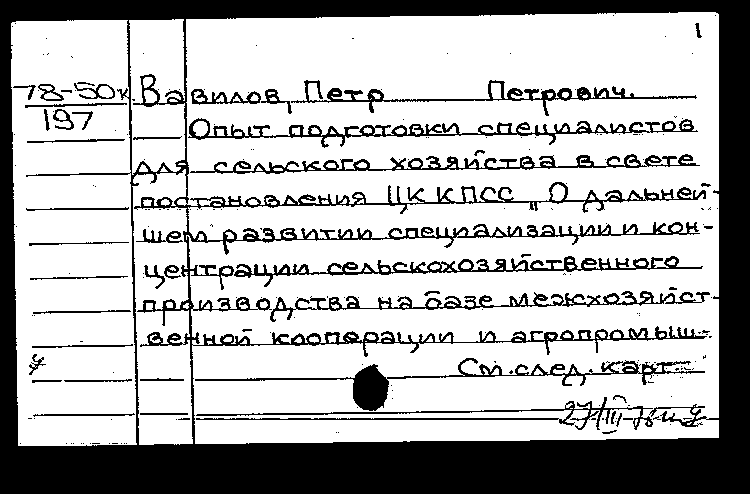 1
78-50к Вавилов, Петр Петрович.
197 Опыт подготовки специалистов
для сельского хозяйства в свете
постановления ЦК КПСС „О дальней-
шем развитии специализации и кон-
центрации сельскохозяйственного
производства на базе межхозяйст-
венной кооперации и агропромыш-
См. след. карт
27/III-78